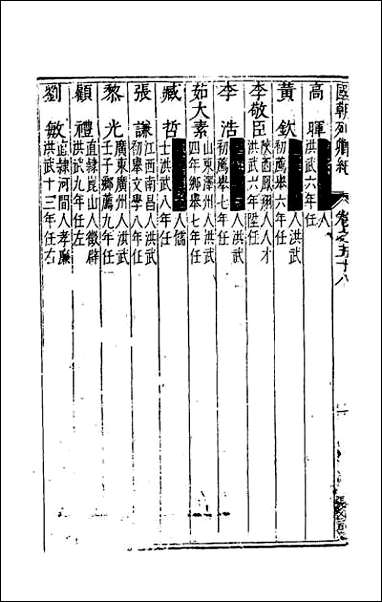 國朝列卿紀 卷之五十八
高暉 人洪武六年任
黃欽 人洪武初薦舉六年任
李敬臣 陝西鳳翔人人才洪武六年陞任
李浩 人洪武初薦舉七年任
茹大素 山東澤州人洪武四年鄉舉七年任
臧哲 人儒士洪武八年任
張謙 江西南昌人洪武初舉文學八年任
黎光 廣東廣州人洪武壬子鄉薦九年任
顧禮 直隸崑山人徵辟洪武九年任左
劉敏 直隸河間人孝廉洪武十三年任右